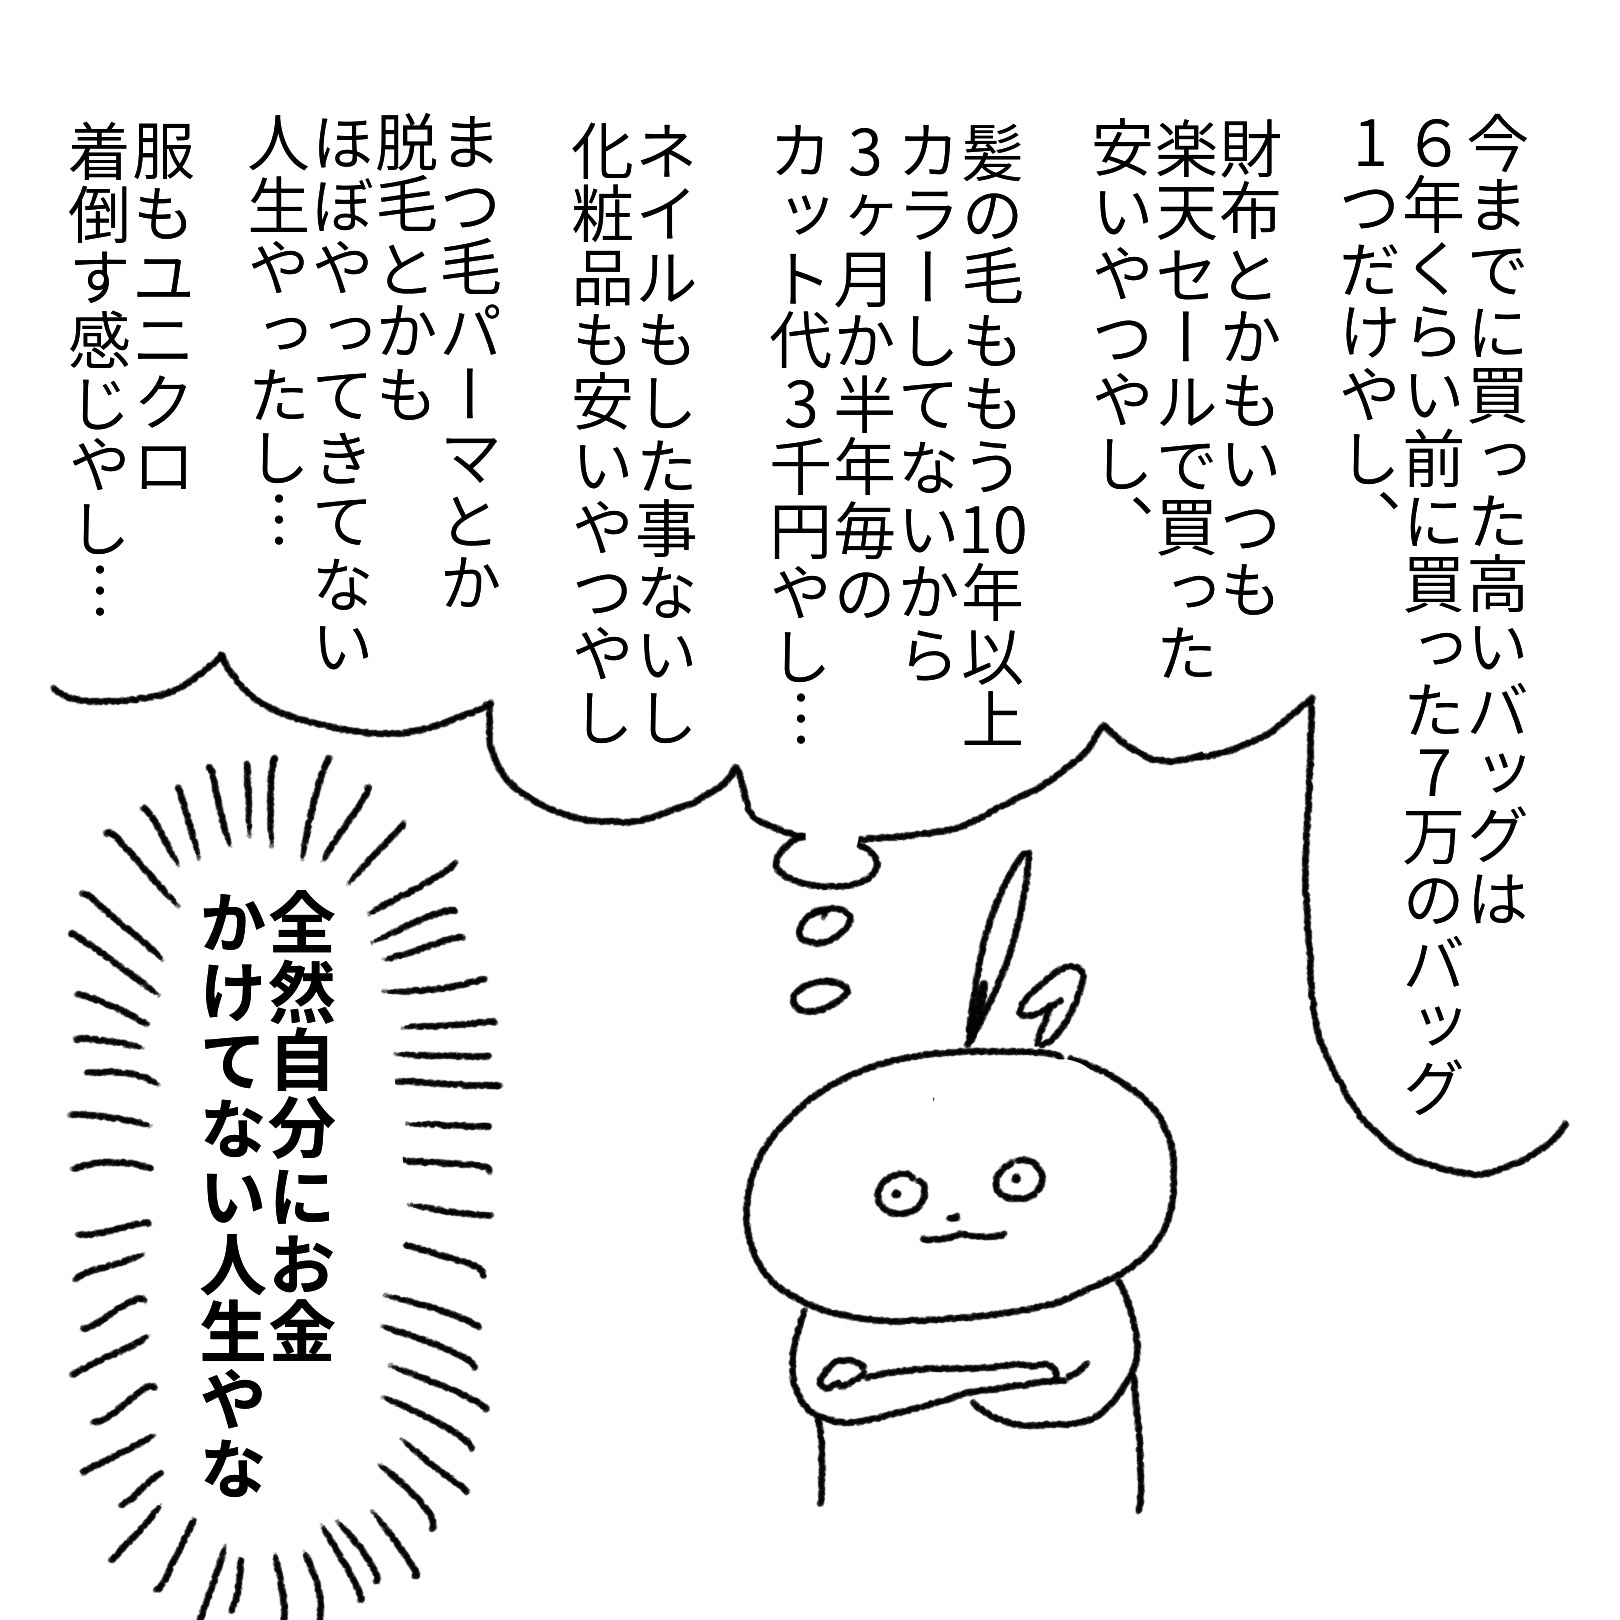 今までに買った高いバッグは
６年くらい前に買った７万のバッグ
１つだけやし、
財布とかもいつも
楽天セールで買った
安いやつやし、
髪の毛ももう10年以上
カラーしてないから
３ヶ月か半年毎の
カット代３千円やし…
ネイルもした事ないし
化粧品も安いやつやし
まつ毛パーマとか
脱毛とかも
ほぼやってきてない
人生やったし…
服もユニクロ
着倒す感じやし…
全然自分にお金
かけてない人生やな